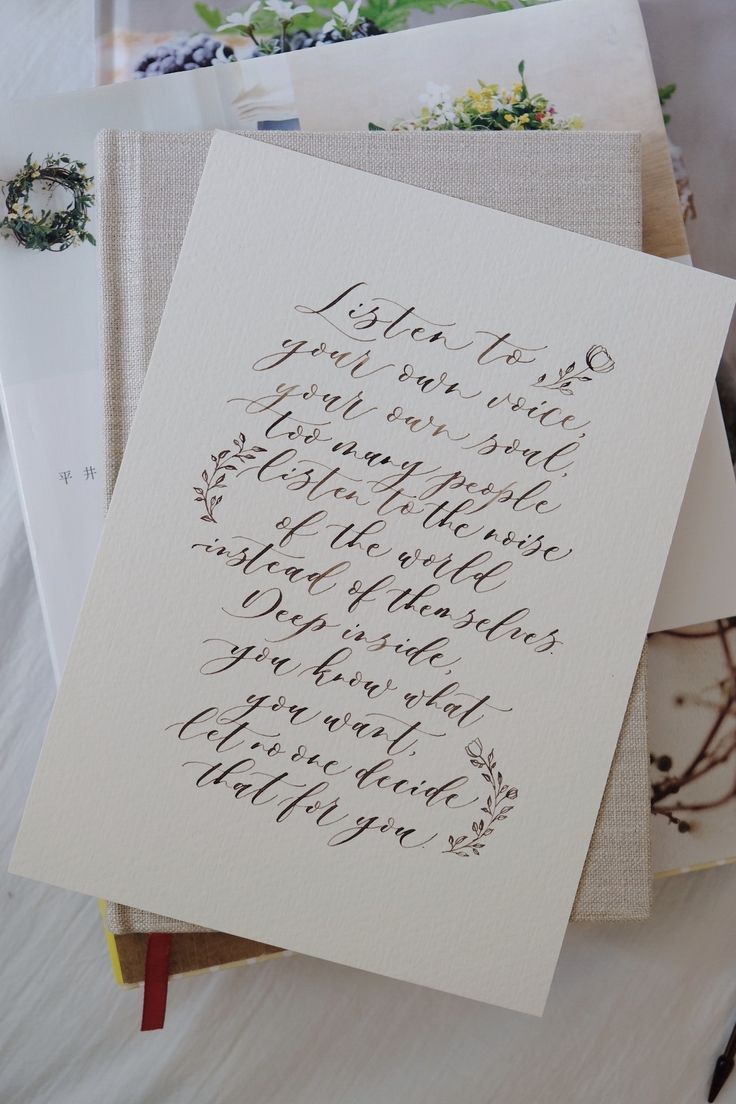 Listen to
your own voice,
your own soul,
too many people
listen to the noise
of the world
instead of themselves.
Deep inside,
you know what
you want,
let no one decide
that for you.
平井